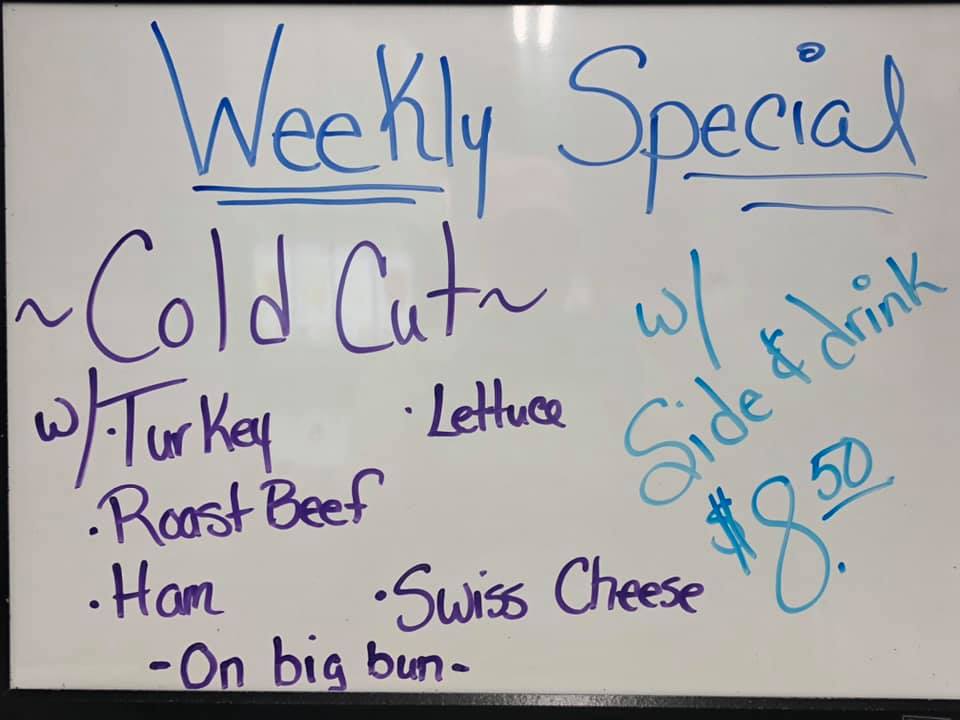 Weekly Special
~Cold Cut~
w/ · Turkey
· Lettuce
· Roast Beef
· Ham
· Swiss Cheese
- On big bun -
w/
Side & drink
$8.50